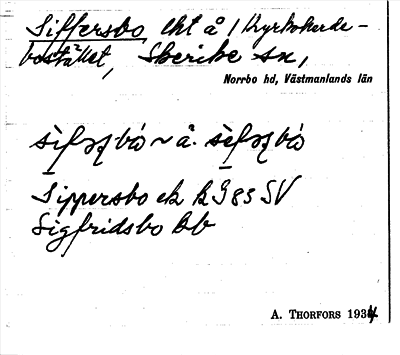 Siffersbo, lht å 1 kyrkoherde-
bostället, Skerike sn,
Norrbo hd, Västmanlands län
sìfəʒbó ~ å. sèfəʒbó
Sippersbo ek k G 83 SV
Sigfridsbo Bb
A. THORFORS 1934